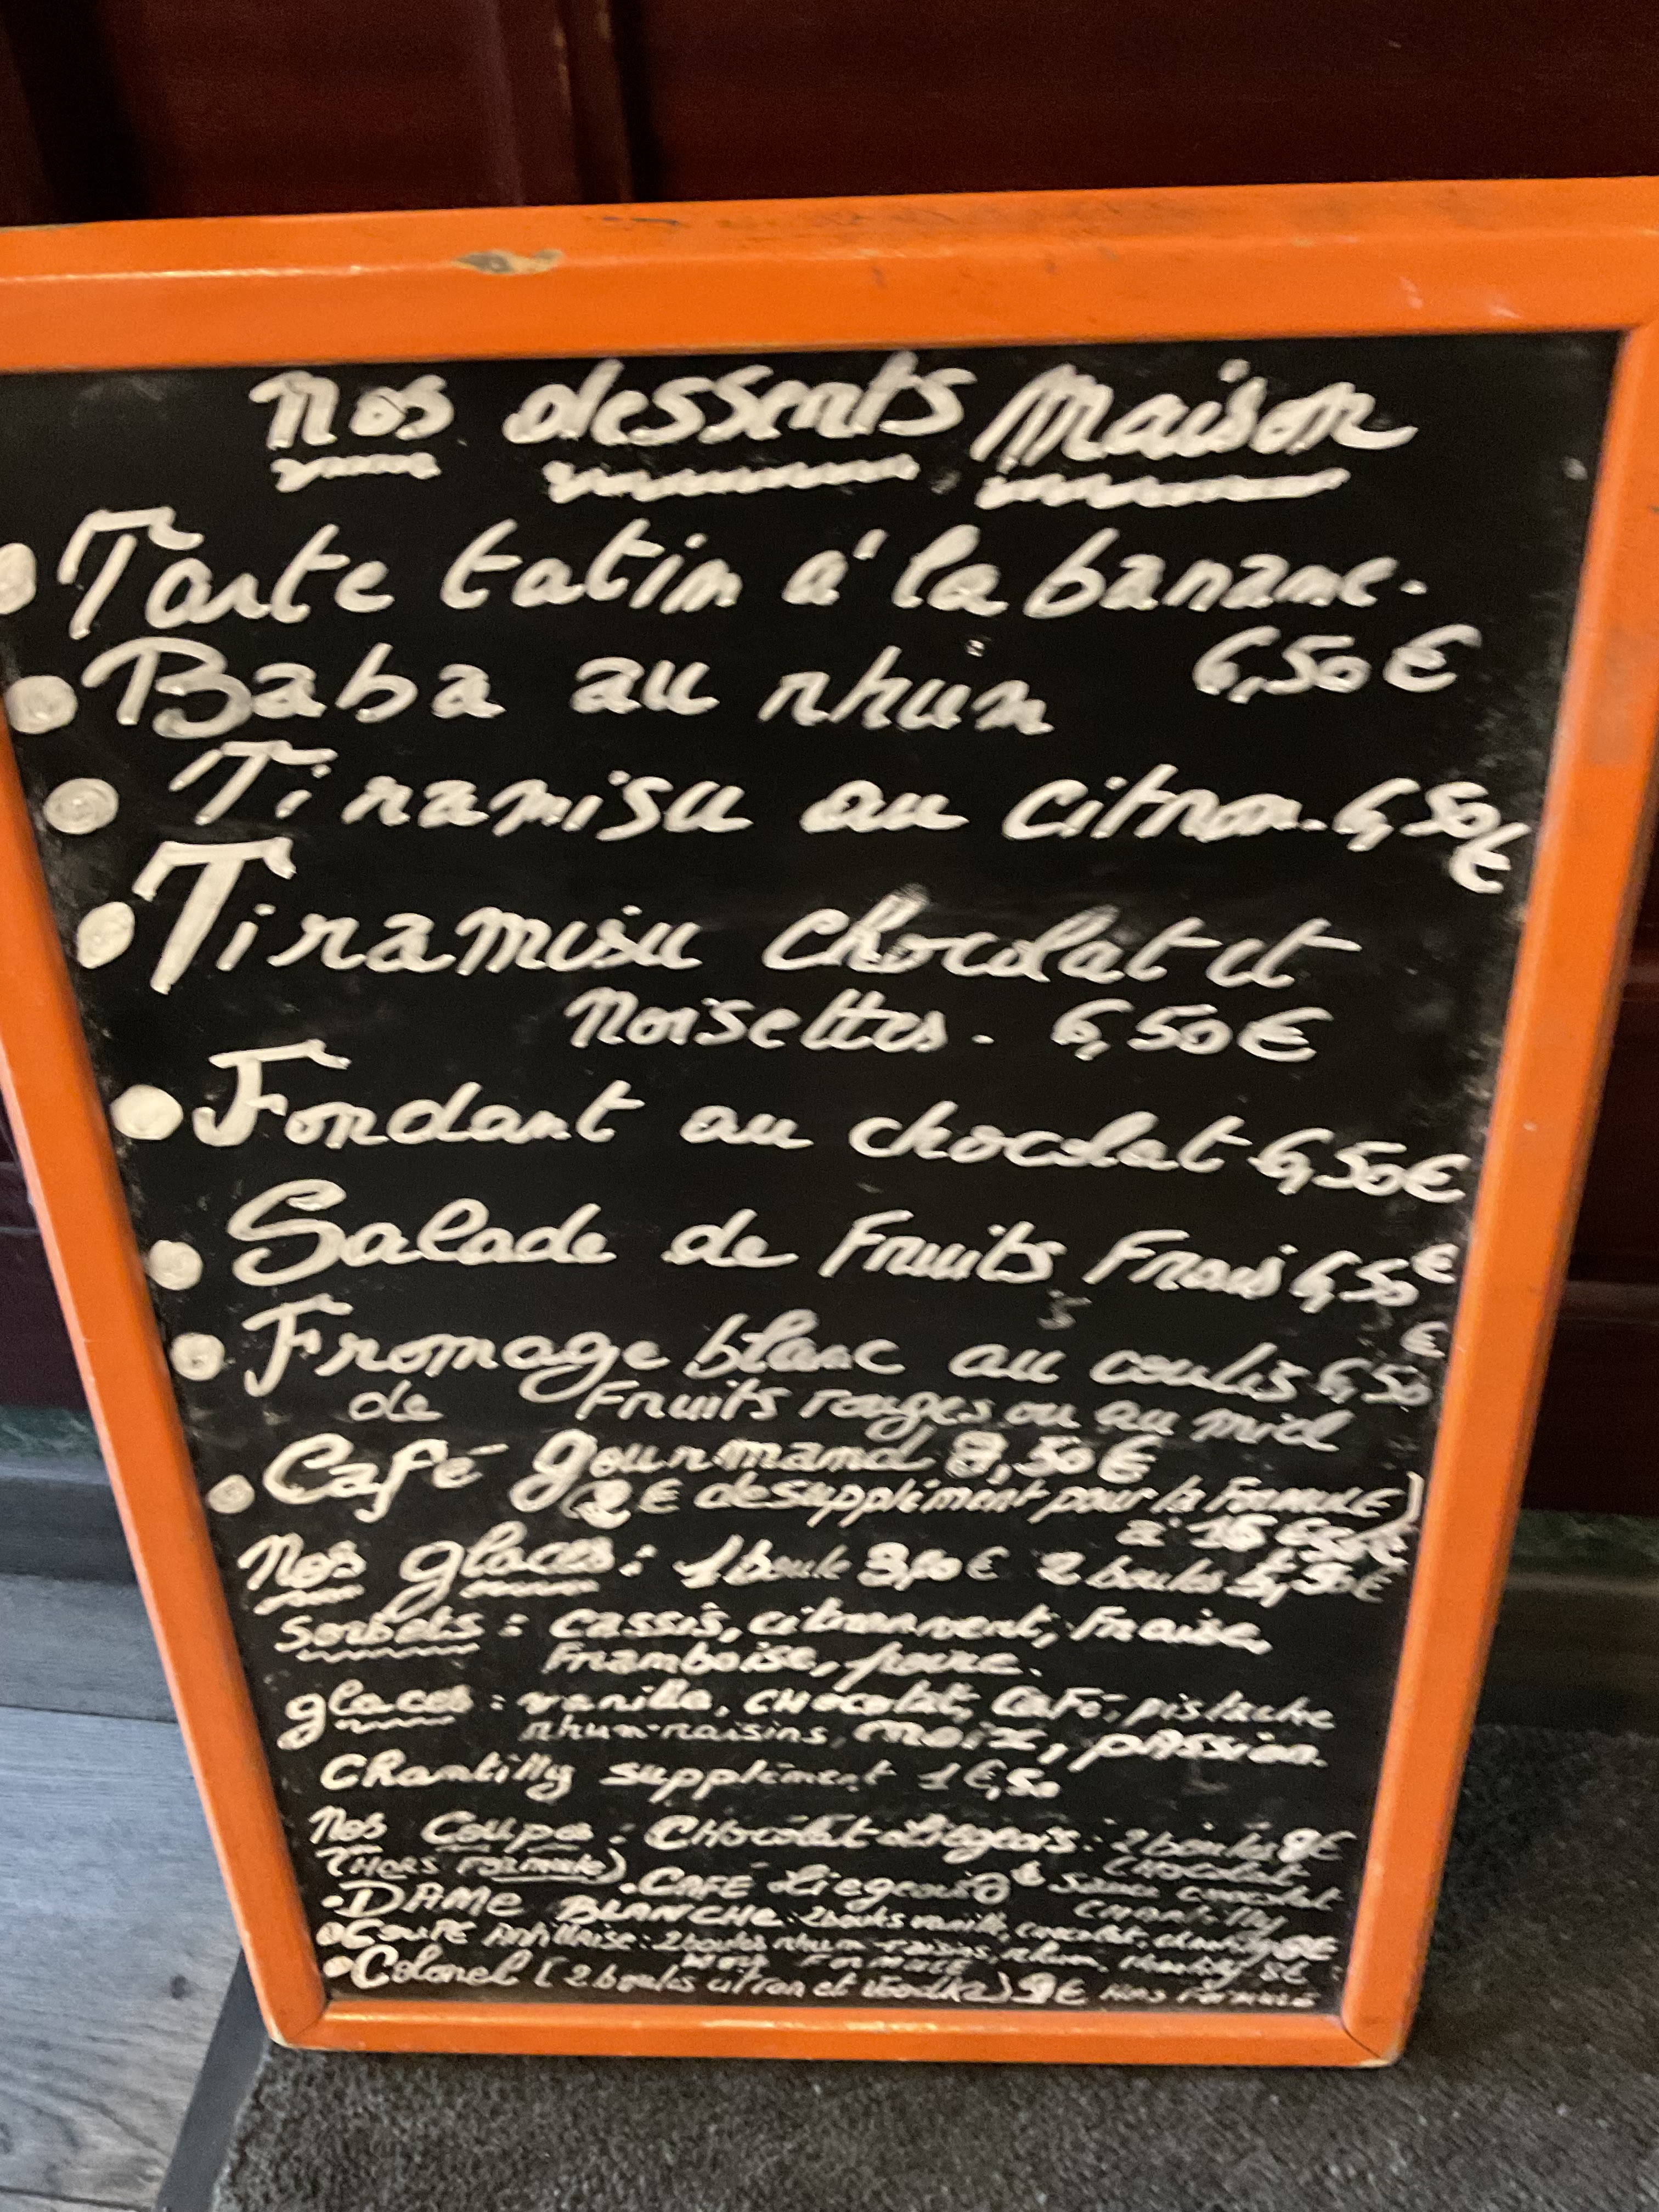 Nos desserts Maison
Tarte tatin à la banane.
6,50€
Baba au rhum
Tiramisu au citron. 6,50€
Tiramisu chocolat et
Noisettes. 6,50€
Fondant au chocolat 6,50€
Salade de Fruits Frais 6,50€
Fromage blanc au coulis 6,50€
de Fruits rouges ou au miel
Café gourmand 8,50€
2€ de supplément pour la Formule)
Nos glaces: 1 boule 2 boules
Sorbets: cassis, citron vert, Fraise,
Framboise, poire.
glaces: vanille, CHocolat, CaFé, pistache
rhum-raisins, noix, passion.
Chantilly supplément 1€,50
Nos Coupes: CHocolat Liégeois: 2 boules 8€
(Hors Formule) chocolat
• CAFÉ Liégeois sauce chocolat
chantilly
• DAME BLANCHE: 2 boules vanille, chocolat, chantilly 8€
Coupe Antillaise: 2 boules rhum-raisins, rhum, chantilly 8€
Hors Formule
• Colonel (2 boules citron et vodka) 9€ Hors Formule